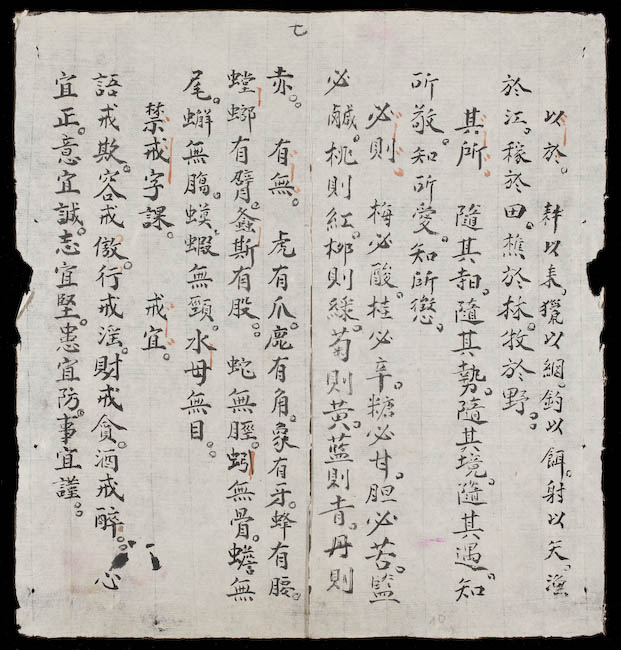 七
以於。 耕以耒。獵以網。釣以餌。射以矢。漁
於江。稼於田。樵於林。牧於野。
其所 隨其 隨其勢。隨其境。隨其遇。知
所敬。知所愛。知所懲。
必則 梅必酸。桂必辛。糖必甘。胆必苦。监
必鹹。桃則紅。柳則緑。菊則黄。藍則青。丹則
赤。 有無。 虎有爪。鹿有角。象有牙。蜂有腰。
螳螂有臂。螽斯有股。 蛇無脛。蚓無骨。蟾無
尾。蠏無膓。蟆蝦無頸。水母無目。
禁戒字課。 戒宜。
語戒欺。容戒傲。行戒淫。財戒貪。酒戒醉。 心
宜正。意宜誠。志宜堅。患宜防。事宜謹。